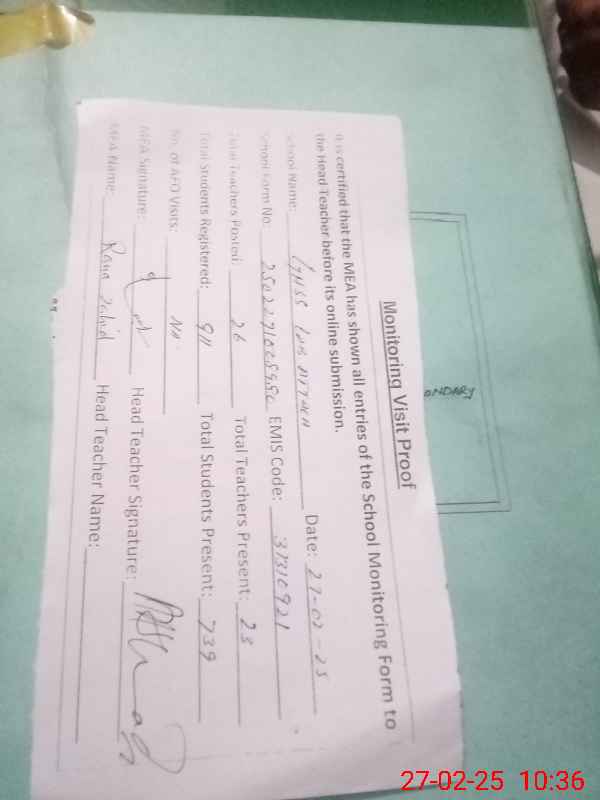 ONDARY
Monitoring Visit Proof
It is certified that the MEA has shown all entries of the School Monitoring Form to
the Head Teacher before its online submission.
School Name: Date: 27-02-25
School Form No: EMIS Code: 37310921
Total Teachers Posted: 26 Total Teachers Present: 23
Total Students Registered: 911 Total Students Present: 739
No. of AEO Visits: NA
MEA Signature: Head Teacher Signature:
MEA Name: Rana Zahid Head Teacher Name:
27-02-25 10:36